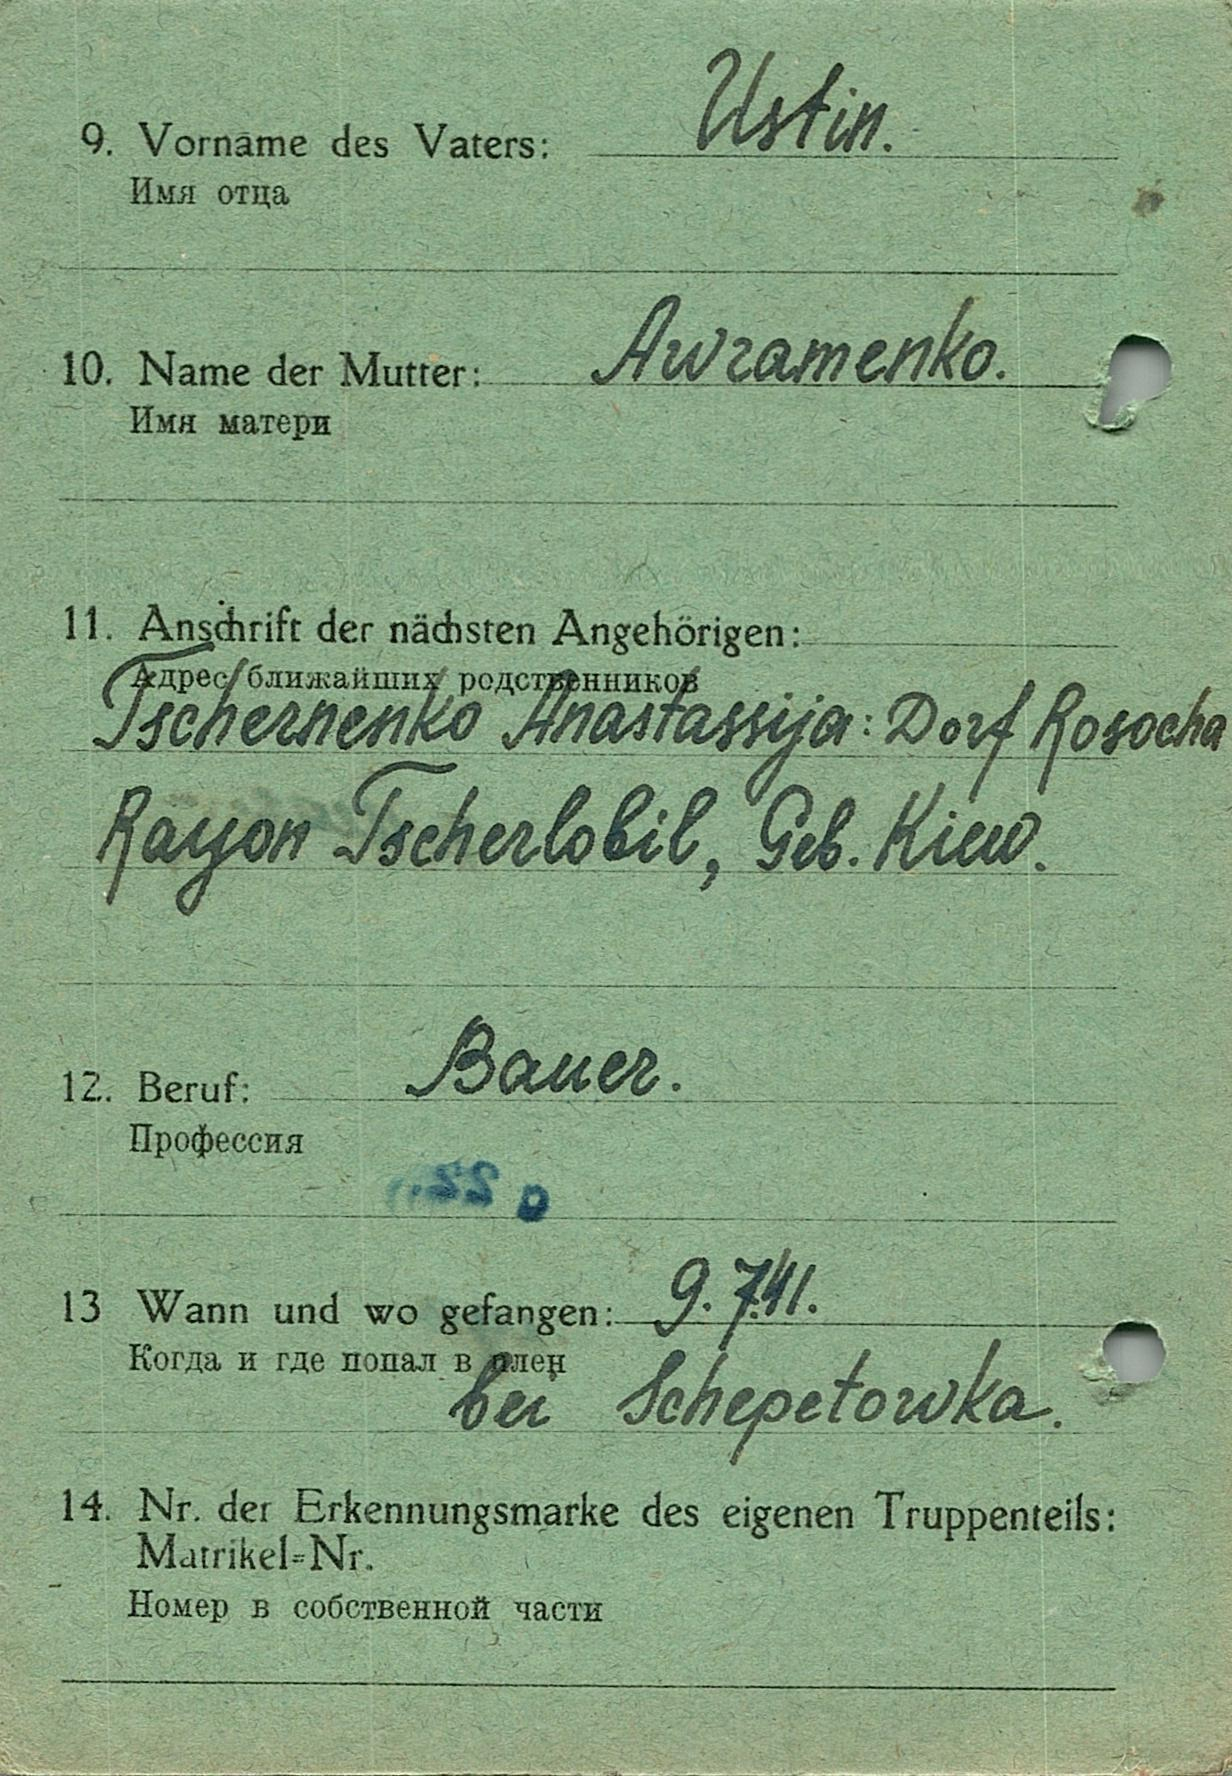 9. Vorname des Vaters: Ustin.
Имя отца
10. Name der Mutter: Awramenko.
Имя матери
11. Anschrift der nächsten Angehörigen:
Адрес ближайших родственников
Tschernenko Anastassija: Dorf Rosocha
Rayon Tscherlobil, Geb. Kiew.
12. Beruf: Bauer.
Профессия
13 Wann und wo gefangen: 9.7.41.
Когда и где попал в плен
bei Schepetowka.
14. Nr. der Erkennungsmarke des eigenen Truppenteils:
Matrikel-Nr.
Номер в собственной части